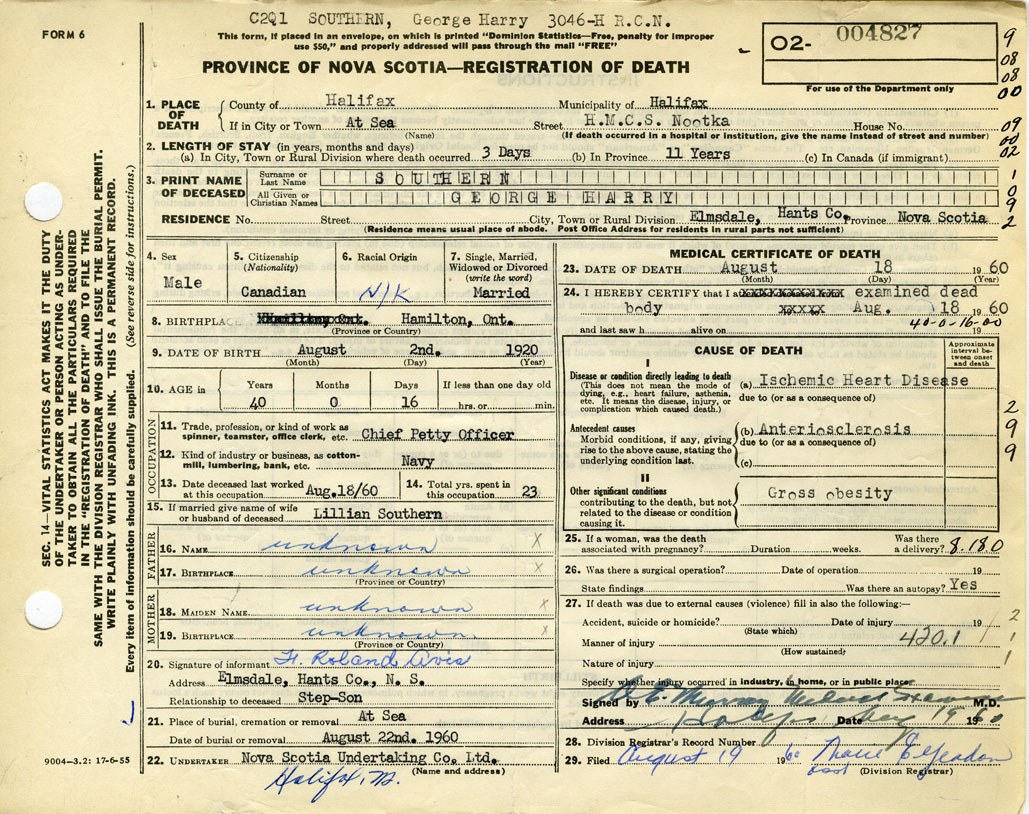 C2Q1 SOUTHERN, George Harry 3046-H R.C.N.
FORM 6
This form, if placed in an envelope, on which is printed "Dominion Statistics—Free, penalty for improper
use $50," and properly addressed will pass through the mail "FREE"
PROVINCE OF NOVA SCOTIA—REGISTRATION OF DEATH
02- 004827
For use of the Department only
9
08
08
00
09
00
02
1
0
9
2
SEC. 14—VITAL STATISTICS ACT MAKES IT THE DUTY
OF THE UNDERTAKER OR PERSON ACTING AS UNDER-
TAKER TO OBTAIN ALL THE PARTICULARS REQUIRED
IN THE "REGISTRATION OF DEATH" AND TO FILE THE
SAME WITH THE DIVISION REGISTRAR WHO SHALL ISSUE THE BURIAL PERMIT.
WRITE PLAINLY WITH UNFADING INK. THIS IS A PERMANENT RECORD.
Every item of information should be carefully supplied. (See reverse side for instructions.)
1. PLACE OF DEATH
County of Halifax Municipality of Halifax
If in City or Town At Sea Street H.M.C.S. Nootka House No.
(Name) (If death occurred in a hospital or institution, give the name instead of street and number)
2. LENGTH OF STAY (in years, months and days)
(a) In City, Town or Rural Division where death occurred 3 Days (b) In Province 11 Years (c) In Canada (if immigrant)
3. PRINT NAME OF DECEASED
Surname or Last Name SOUTHERN
All Given or Christian Names GEORGE HARRY
RESIDENCE No. Street City, Town or Rural Division Elmsdale, Hants Co. Province Nova Scotia
(Residence means usual place of abode. Post Office Address for residents in rural parts not sufficient)
4. Sex Male
5. Citizenship (Nationality) Canadian
6. Racial Origin N/K
7. Single, Married, Widowed or Divorced (write the word) Married
8. BIRTHPLACE Hamilton, Ont.
(Province or Country)
9. DATE OF BIRTH August 2nd. 1920
(Month) (Day) (Year)
10. AGE in Years Months Days If less than one day old
40 0 16 hrs. or min.
OCCUPATION
11. Trade, profession, or kind of work as
spinner, teamster, office clerk, etc. Chief Petty Officer
12. Kind of industry or business, as cotton-
mill, lumbering, bank, etc. Navy
13. Date deceased last worked at this occupation Aug.18/60
14. Total yrs. spent in this occupation 23
15. If married give name of wife
or husband of deceased Lillian Southern
FATHER
16. NAME unknown X
17. BIRTHPLACE unknown X
(Province or Country)
MOTHER
18. MAIDEN NAME unknown X
19. BIRTHPLACE unknown X
(Province or Country)
20. Signature of informant H. Roland Avis
Address Elmsdale, Hants Co., N. S.
Relationship to deceased Step-Son
21. Place of burial, cremation or removal At Sea
Date of burial or removal August 22nd. 1960
22. UNDERTAKER Nova Scotia Undertaking Co. Ltd.
(Name and address)
9004—3.2: 17-6-55
MEDICAL CERTIFICATE OF DEATH
23. DATE OF DEATH August 18 1960
(Month) (Day) (Year)
24. I HEREBY CERTIFY that I examined dead
body Aug. 18 1960
40-0-16-00
and last saw h alive on 19
CAUSE OF DEATH
Approximate interval between onset and death
I
Disease or condition directly leading to death
(This does not mean the mode of
dying, e.g., heart failure, asthenia,
etc. It means the disease, injury, or
complication which caused death.)
(a) Ischemic Heart Disease
due to (or as a consequence of)
Antecedent causes
Morbid conditions, if any, giving
rise to the above cause, stating the
underlying condition last.
(b) Anteriosclerosis
due to (or as a consequence of)
(c)
2
9
9
II
Other significant conditions
contributing to the death, but not
related to the disease or condition
causing it.
Gross obesity
25. If a woman, was the death Was there
associated with pregnancy? Duration weeks. a delivery? 8.180
26. Was there a surgical operation? Date of operation 19
State findings Was there an autopsy? Yes
27. If death was due to external causes (violence) fill in also the following:—
Accident, suicide or homicide? Date of injury 19
(State which)
Manner of injury 420.1
(How sustained)
Nature of injury
2
1
1
Specify whether injury occurred in industry, in home, or in public place
Signed by Murray M.D.
Address Halifax Date Aug 19 1960
28. Division Registrar's Record Number
29. Filed August 19 1960
(Division Registrar)
Halifax, N.S.